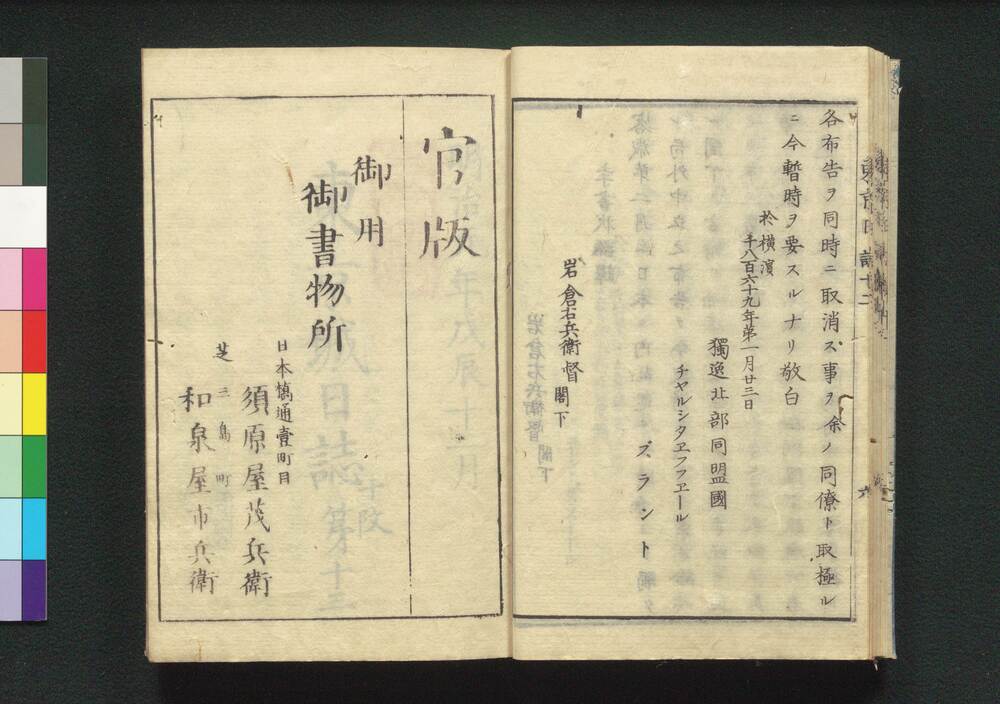 各布告ヲ同時ニ取消ス事ヲ余ノ同僚ト取極ル
ニ今暫時ヲ要スルナリ敬白
於横濱
千八百六十九年第一月廿三日
獨逸北部同盟國
チャルシタヱフフヱール
ズラント
岩倉右兵衛督閣下
官版
御用
御書物所
日本橋通壹町目
須原屋茂兵衛
芝三島町
和泉屋市兵衛